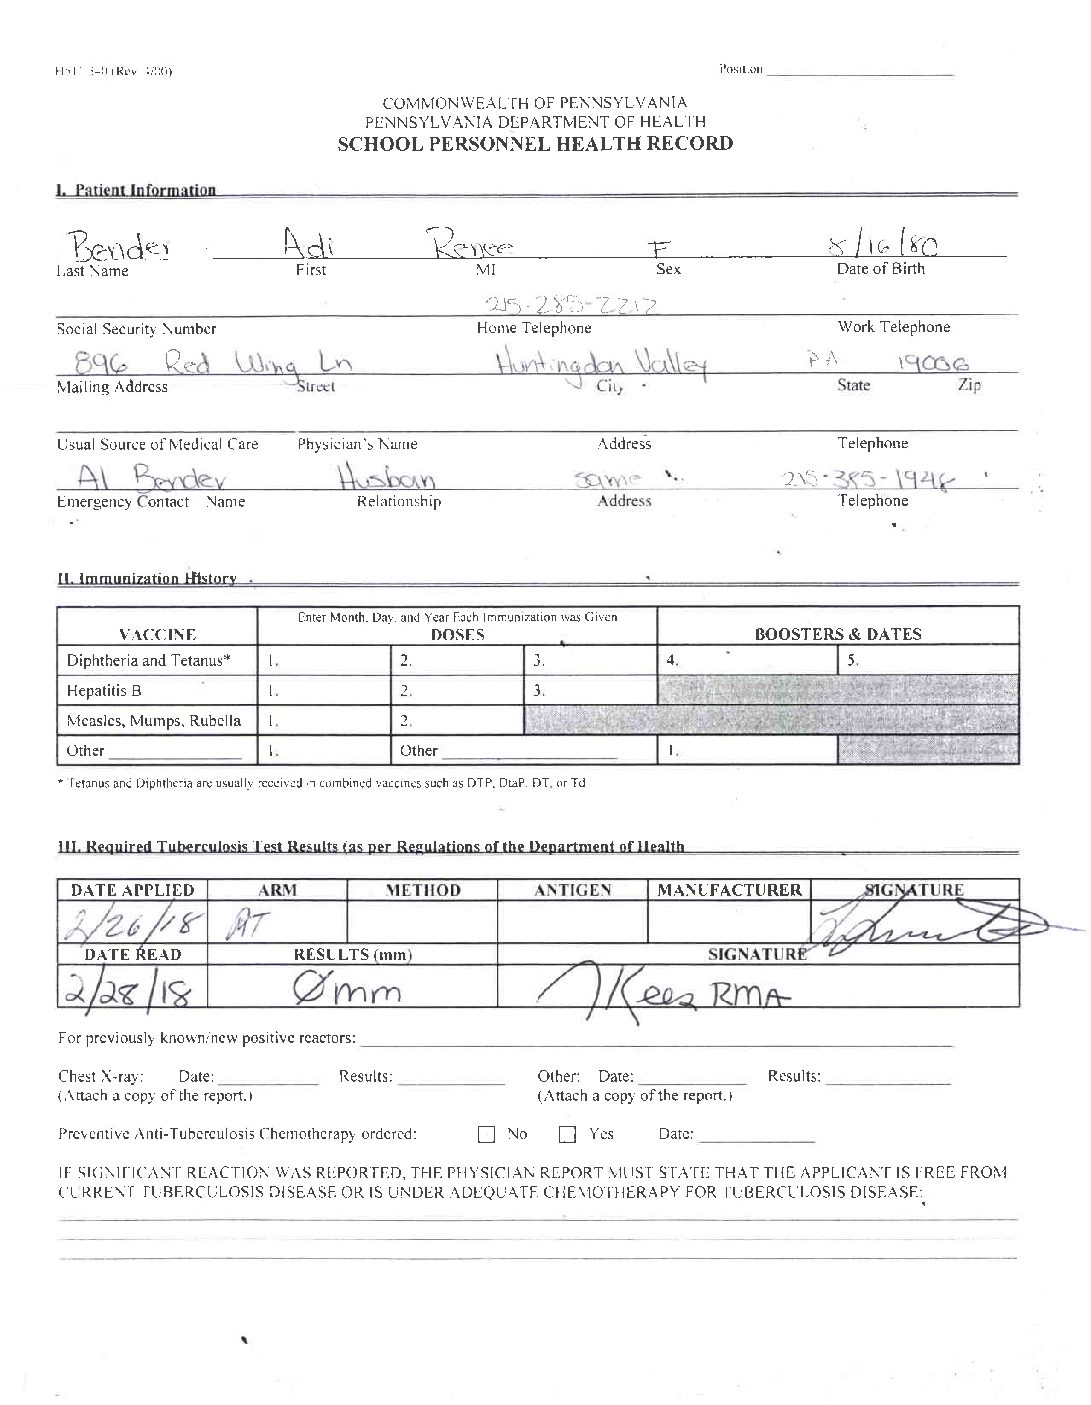 Position
COMMONWEALTH OF PENNSYLVANIA
PENNSYLVANIA DEPARTMENT OF HEALTH
SCHOOL PERSONNEL HEALTH RECORD
I. Patient Information
Bender Adi Renee F 8/16/80
Last Name First MI Sex Date of Birth
215-285-2217
Social Security Number Home Telephone Work Telephone
896 Red Wing Ln Huntingdon Valley PA 19006
Mailing Address Street City State Zip
Usual Source of Medical Care Physician's Name Address Telephone
Al Bender Husban same 215-385-1948
Emergency Contact Name Relationship Address Telephone
II. Immunization History
Enter Month, Day, and Year Each Immunization was Given
VACCINE DOSES BOOSTERS & DATES
Diphtheria and Tetanus* 1. 2. 3. 4. 5.
Hepatitis B 1. 2. 3.
Measles, Mumps, Rubella 1. 2.
Other 1. Other 1.
* Tetanus and Diphtheria are usually received in combined vaccines such as DTP, DtaP, DT, or Td
III. Required Tuberculosis Test Results (as per Regulations of the Department of Health
DATE APPLIED ARM METHOD ANTIGEN MANUFACTURER SIGNATURE
2/26/18
DATE READ RESULTS (mm) SIGNATURE
2/28/18 Ømm Kees RMA
For previously known/new positive reactors:
Chest X-ray: Date: Results: Other: Date: Results:
(Attach a copy of the report.) (Attach a copy of the report.)
Preventive Anti-Tuberculosis Chemotherapy ordered: No Yes Date:
IF SIGNIFICANT REACTION WAS REPORTED, THE PHYSICIAN REPORT MUST STATE THAT THE APPLICANT IS FREE FROM
CURRENT TUBERCULOSIS DISEASE OR IS UNDER ADEQUATE CHEMOTHERAPY FOR TUBERCULOSIS DISEASE: